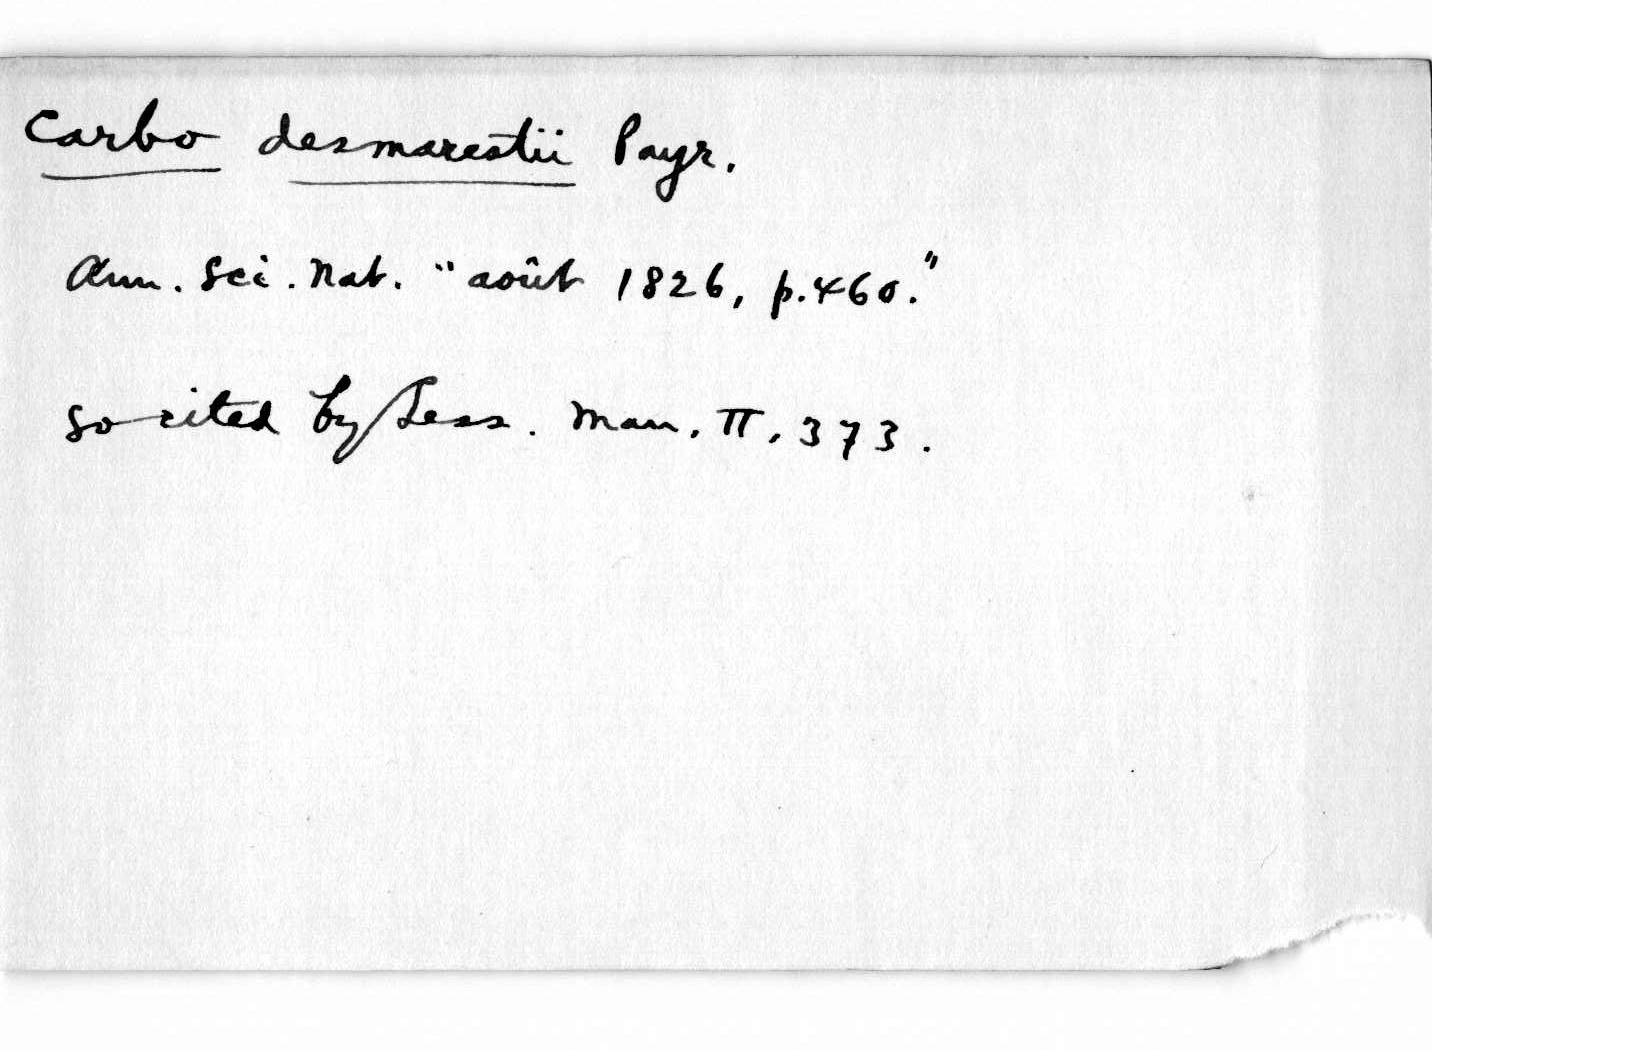 Carbo desmarestii Payr.
Ann. Sci. Nat. "août 1826, p.460."
so cited by Less. Man. II, 373.